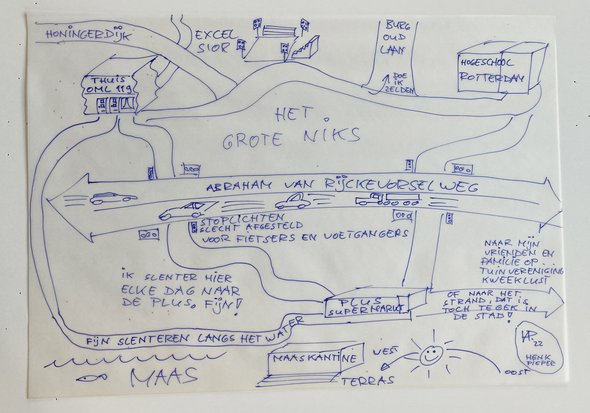 HONINGERDIJK
EXCEL
SIOR
BURG
OUD
LAAN
DOE
IK
ZELDEN
HOGESCHOOL
ROTTERDAM
THUIS
OML 119
HET
GROTE NIKS
ABRAHAM VAN RIJCKEVORSELWEG
STOPLICHTEN
SLECHT AFGESTELD
VOOR FIETSERS EN VOETGANGERS
IK SLENTER HIER
ELKE DAG NAAR
DE PLUS. FIJN!
NAAR MIJN
VRIENDEN EN
FAMILIE OP
TUINVERENIGING
KWEEKLUST
PLUS
SUPERMARKT
OF NAAR HET
STRAND, DAT IS
TOCH TE GEK IN
DE STAD!
FIJN SLENTEREN LANGS HET WATER
MAAS
MAASKANTINE
TERRAS
WEST
OOST
22
HENK
PIEPER